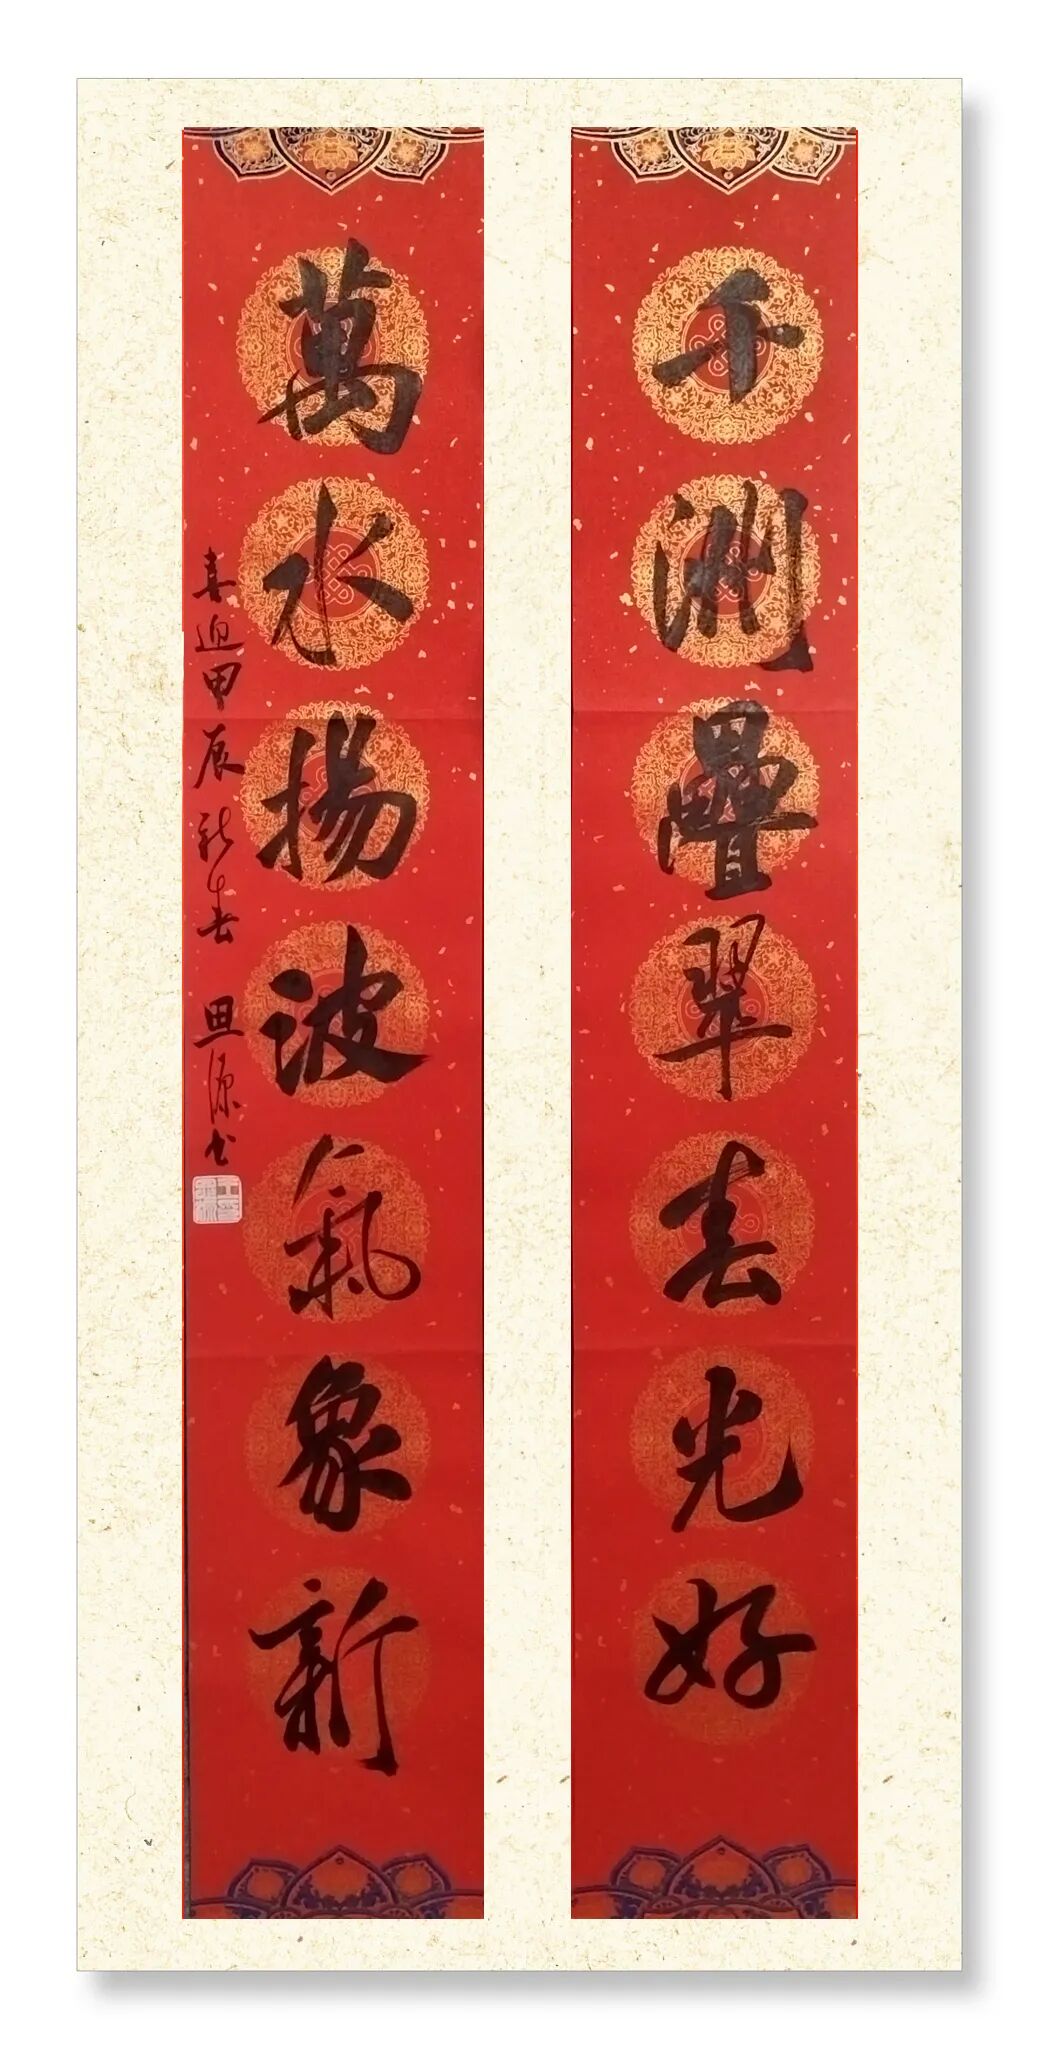 千洲疊翠春光好
萬水揚波氣象新
喜迎甲辰新春 旦源书